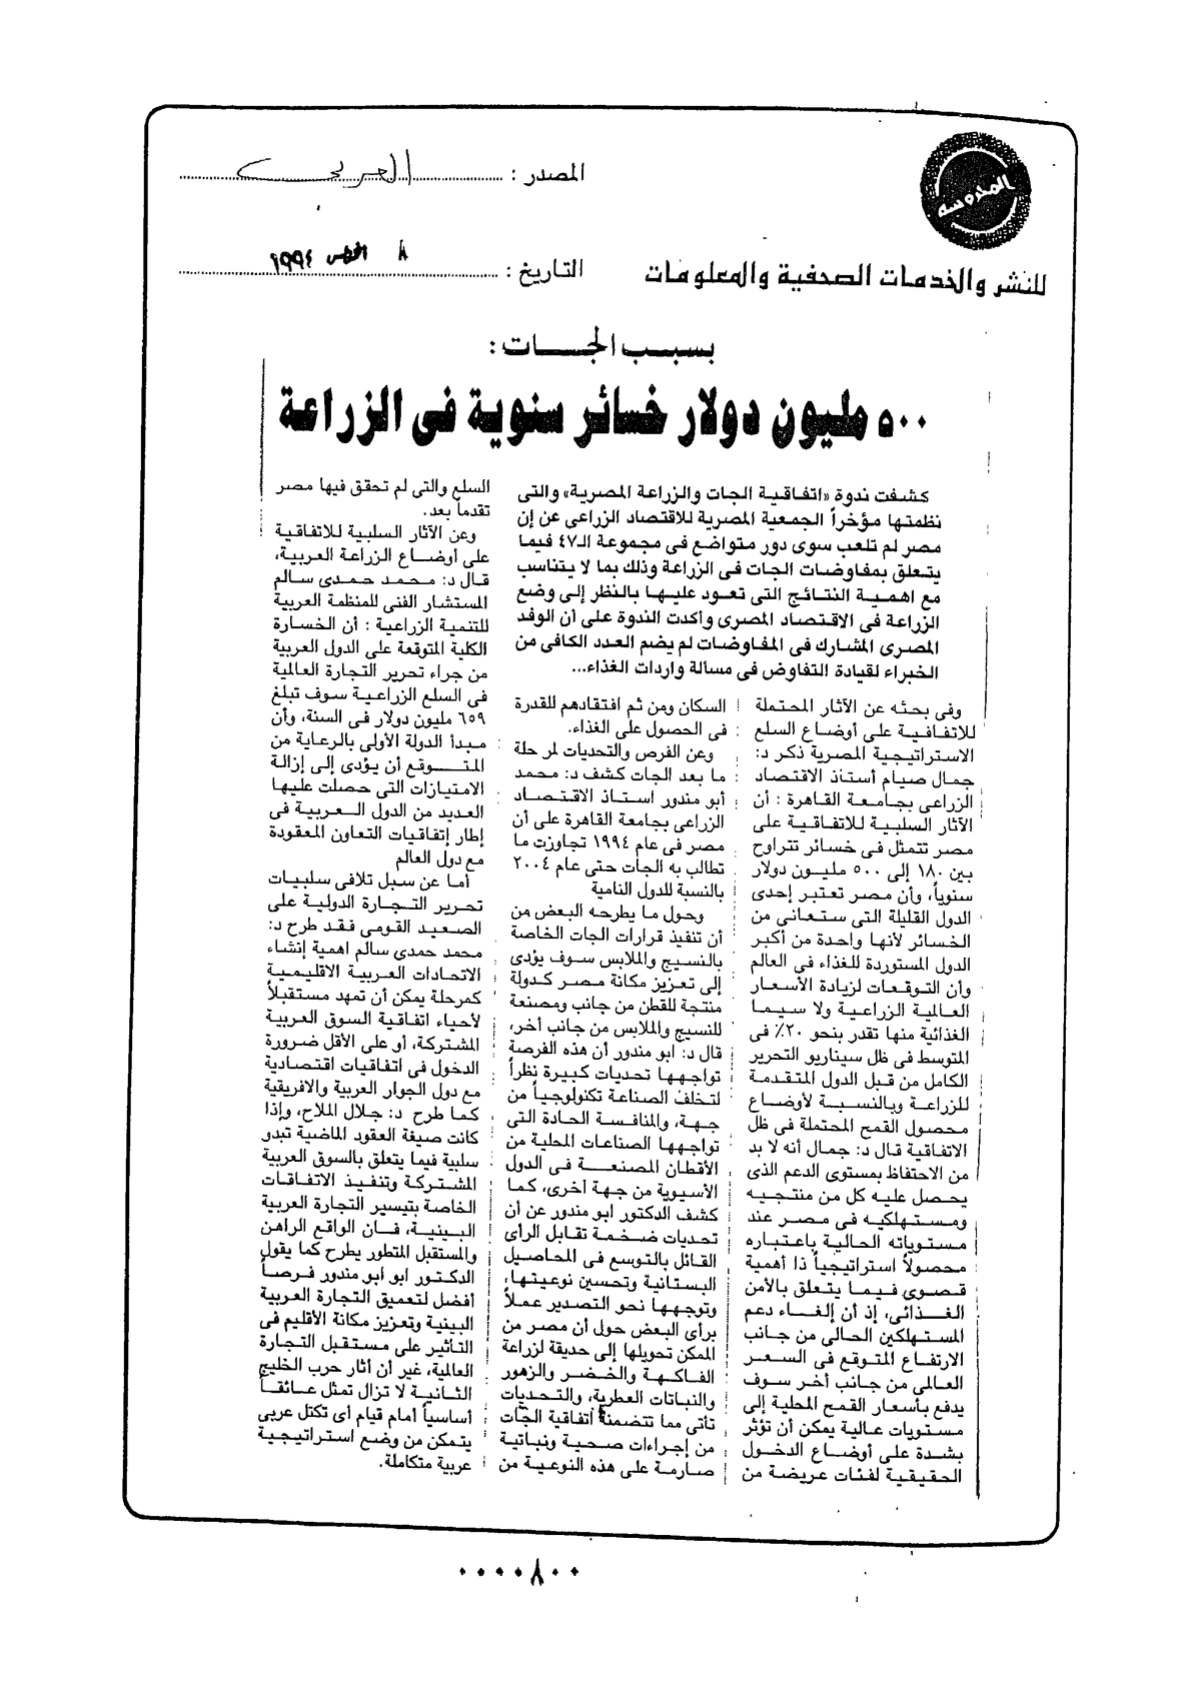 المدروسه
للنشر والخدمات الصحفية والمعلومات
المصدر : العربى
التاريخ : ٨ اغسطس ١٩٩٤
بسبب الجات :
٥٠٠ مليون دولار خسائر سنوية فى الزراعة
كشفت ندوة «اتفاقية الجات والزراعة المصرية» والتى
نظمتها مؤخراً الجمعية المصرية للاقتصاد الزراعى عن إن
مصر لم تلعب سوى دور متواضع فى مجموعة الـ٤٧ فيما
يتعلق بمفاوضات الجات فى الزراعة وذلك بما لا يتناسب
مع اهمية النتائج التى تعود عليها بالنظر إلى وضع
الزراعة فى الاقتصاد المصرى وأكدت الندوة على أن الوفد
المصرى المشارك فى المفاوضات لم يضم العدد الكافى من
الخبراء لقيادة التفاوض فى مسالة واردات الغذاء...
وفى بحثه عن الآثار المحتملة
للاتفاقية على أوضاع السلع
الاستراتيجية المصرية ذكر د:
جمال صيام أستاذ الاقتصاد
الزراعى بجامعة القاهرة : أن
الآثار السلبية للاتفاقية على
مصر تتمثل فى خسائر تتراوح
بين ١٨٠ إلى ٥٠٠ مليون دولار
سنوياً، وأن مصر تعتبر إحدى
الدول القليلة التى ستعانى من
الخسائر لأنها واحدة من أكبر
الدول المستوردة للغذاء فى العالم
وأن التوقعات لزيادة الأسعار
العالمية الزراعية ولا سيما
الغذائية منها تقدر بنحو ٢٠٪ فى
المتوسط فى ظل سيناريو التحرير
الكامل من قبل الدول المتقدمة
للزراعة وبالنسبة لأوضاع
محصول القمح المحتملة فى ظل
الاتفاقية قال د: جمال أنه لا بد
من الاحتفاظ بمستوى الدعم الذى
يحصل عليه كل من منتجيه
ومستهلكيه فى مصر عند
مستوياته الحالية باعتباره
محصولاً استراتيجياً ذا أهمية
قصوى فيما يتعلق بالأمن
الغذائى، إذ أن إلغاء دعم
المستهلكين الحالى من جانب
الارتفاع المتوقع فى السعر
العالى من جانب أخر سوف
يدفع بأسعار القمح المحلية إلى
مستويات عالية يمكن أن تؤثر
بشدة على أوضاع الدخول
الحقيقية لفئات عريضة من
السكان ومن ثم افتقادهم للقدرة
فى الحصول على الغذاء.
وعن الفرص والتحديات لمرحلة
ما بعد الجات كشف د: محمد
أبو مندور استاذ الاقتصاد
الزراعى بجامعة القاهرة على أن
مصر فى عام ١٩٩٤ تجاوزت ما
تطالب به الجات حتى عام ٢٠٠٤
بالنسبة للدول النامية
وحول ما يطرحه البعض من
أن تنفيذ قرارات الجات الخاصة
بالنسيج والملابس سوف يؤدى
إلى تعزيز مكانة مصر كدولة
منتجة للقطن من جانب ومصنعة
للنسيج والملابس من جانب أخر،
قال د: ابو مندور أن هذه الفرصة
تواجهها تحديات كبيرة نظراً
لتخلف الصناعة تكنولوجياً من
جهة، والمنافسة الحادة التى
تواجهها الصناعات المحلية من
الأقطان المصنعة فى الدول
الأسيوية من جهة أخرى، كما
كشف الدكتور ابو مندور عن أن
تحديات ضخمة تقابل الرأى
القائل بالتوسع فى المحاصيل
البستانية وتحسين نوعيتها،
وتوجهها نحو التصدير عملاً
برأى البعض حول أن مصر من
الممكن تحويلها إلى حديقة لزراعة
الفاكهة والخضر والزهور
والنباتات العطرية، والتحديات
تأتى مما تتضمنه أتفاقية الجات
من إجراءات صحية ونباتية
صارمة على هذه النوعية من
السلع والتى لم تحقق فيها مصر
تقدماً بعد.
وعن الآثار السلبية للاتفاقية
على أوضاع الزراعة العربية،
قال د: محمد حمدى سالم
المستشار الفنى للمنظمة العربية
للتنمية الزراعية : أن الخسارة
الكلية المتوقعة على الدول العربية
من جراء تحرير التجارة العالمية
فى السلع الزراعية سوف تبلغ
٦٥٩ مليون دولار فى السنة، وأن
مبدأ الدولة الأولى بالرعاية من
المتوقع أن يؤدى إلى إزالة
الامتيازات التى حصلت عليها
العديد من الدول العربية فى
إطار إتفاقيات التعاون المعقودة
مع دول العالم
أما عن سبل تلافى سلبيات
تحرير التجارة الدولية على
الصعيد القومى فقد طرح د:
محمد حمدى سالم اهمية إنشاء
الاتحادات العربية الاقليمية
كمرحلة يمكن أن تمهد مستقبلاً
لأحياء اتفاقية السوق العربية
المشتركة، أو على الأقل ضرورة
الدخول فى اتفاقيات اقتصادية
مع دول الجوار العربية والافريقية
كما طرح د: جلال الملاح، وإذا
كانت صيغة العقود الماضية تبدو
سلبية فيما يتعلق بالسوق العربية
المشتركة وتنفيذ الاتفاقات
الخاصة بتيسير التجارة العربية
البينية، فان الواقع الراهن
والمستقبل المتطور يطرح كما يقول
الدكتور ابو أبو مندور فرصاً
أفضل لتعميق التجارة العربية
البينية وتعزيز مكانة الأقليم فى
التأثير على مستقبل التجارة
العالمية، غير أن أثار حرب الخليج
الثانية لا تزال تمثل عائقاً
أساسياً أمام قيام أى تكتل عربى
يتمكن من وضع استراتيجية
عربية متكاملة.
٠٠٠٠٨٠٠